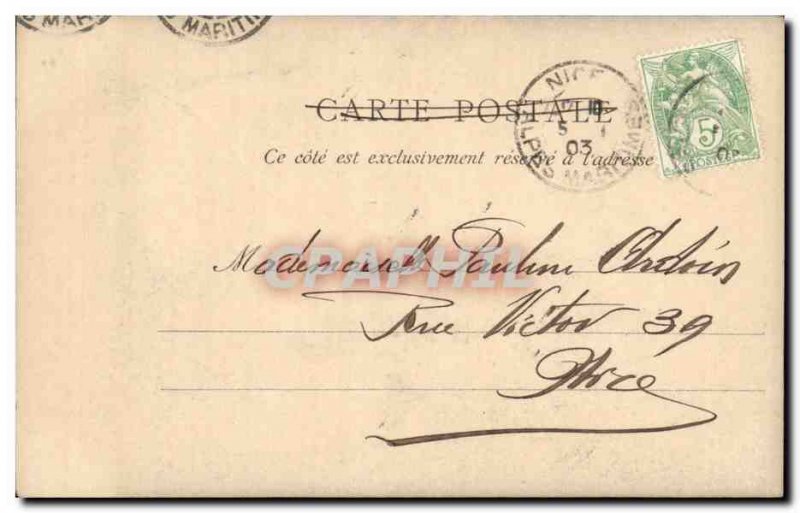 MARITI
CARTE POSTALE
NICE
5 1
03
ALPES MARITIMES
5
POSTES
Ce côté est exclusivement reservé à l'adresse
CPAPHIL
Mademoiselle Pauline
Rue Victor 39
Nice